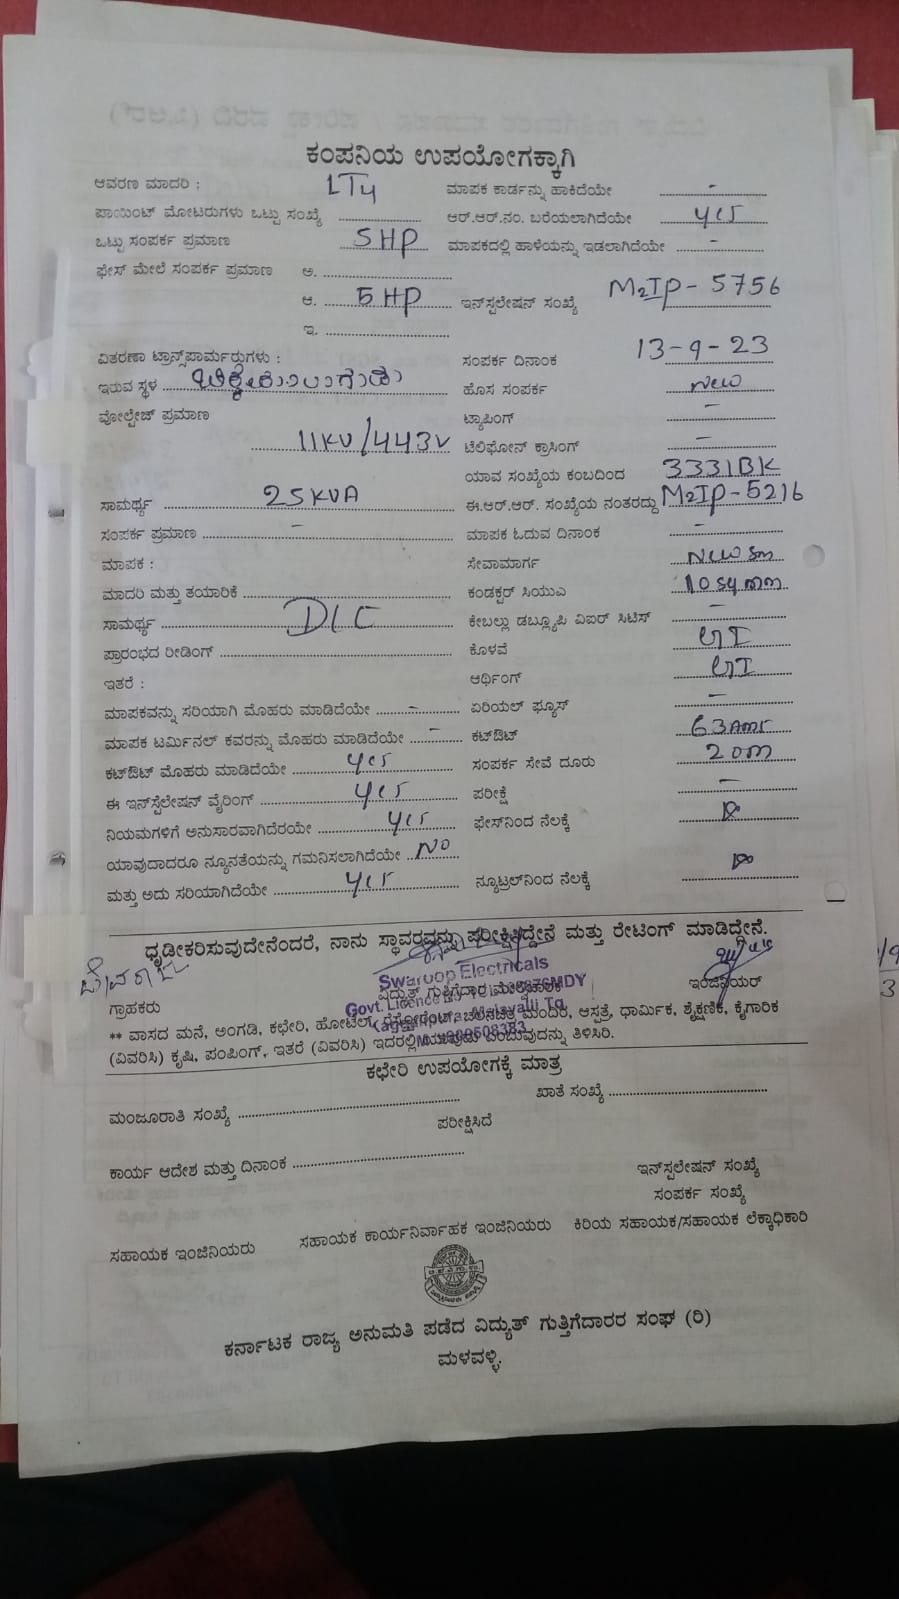 ಕಂಪನಿಯ ಉಪಯೋಗಕ್ಕಾಗಿ
ಆವರಣ ಮಾದರಿ : LT4 ಮಾಪಕ ಕಾರ್ಡನ್ನು ಹಾಕಿದೆಯೇ -
ಪಾಯಿಂಟ್ ಮೋಟರುಗಳು ಒಟ್ಟು ಸಂಖ್ಯೆ ಆರ್.ಆರ್.ನಂ. ಬರೆಯಲಾಗಿದೆಯೇ yes
ಒಟ್ಟು ಸಂಪರ್ಕ ಪ್ರಮಾಣ 5HP ಮಾಪಕದಲ್ಲಿ ಹಾಳೆಯನ್ನು ಇಡಲಾಗಿದೆಯೇ -
ಫೇಸ್ ಮೇಲೆ ಸಂಪರ್ಕ ಪ್ರಮಾಣ ಅ.
ಆ. 5HP ಇನ್‌ಸ್ಟಲೇಷನ್ ಸಂಖ್ಯೆ M2IP-5756
ಇ.
ವಿತರಣಾ ಟ್ರಾನ್ಸ್‌ಫಾರ್ಮರುಗಳು : ಸಂಪರ್ಕ ದಿನಾಂಕ 13-9-23
ಇರುವ ಸ್ಥಳ ಹೊಸ ಸಂಪರ್ಕ New
ವೋಲ್ಟೇಜ್ ಪ್ರಮಾಣ ಟ್ಯಾಪಿಂಗ್ -
11KV/443V ಟೆಲಿಫೋನ್ ಕ್ರಾಸಿಂಗ್ -
ಯಾವ ಸಂಖ್ಯೆಯ ಕಂಬದಿಂದ 3331BK
ಸಾಮರ್ಥ್ಯ 25KVA ಈ.ಆರ್.ಆರ್. ಸಂಖ್ಯೆಯ ನಂತರದ್ದು M2IP-5216
ಸಂಪರ್ಕ ಪ್ರಮಾಣ - ಮಾಪಕ ಓದುವ ದಿನಾಂಕ -
ಮಾಪಕ : ಸೇವಾಮಾರ್ಗ New Sm
ಮಾದರಿ ಮತ್ತು ತಯಾರಿಕೆ ಕಂಡಕ್ಟರ್ ಸಿಯುಎ 10 sq mm
ಸಾಮರ್ಥ್ಯ DLC ಕೇಬಲ್ಲು ಡಬ್ಲ್ಯೂಪಿ ವಿಐರ್ ಸಿಟಿಸ್ -
ಪ್ರಾರಂಭದ ರೀಡಿಂಗ್ ಕೊಳವೆ GI
ಇತರೆ : ಆರ್ಥಿಂಗ್ GI
ಮಾಪಕವನ್ನು ಸರಿಯಾಗಿ ಮೊಹರು ಮಾಡಿದೆಯೇ - ಏರಿಯಲ್ ಫ್ಯೂಸ್ -
ಮಾಪಕ ಟರ್ಮಿನಲ್ ಕವರನ್ನು ಮೊಹರು ಮಾಡಿದೆಯೇ - ಕಟ್‌ಔಟ್ 63Amr
ಕಟ್‌ಔಟ್ ಮೊಹರು ಮಾಡಿದೆಯೇ yes ಸಂಪರ್ಕ ಸೇವೆ ದೂರು 20m
ಈ ಇನ್‌ಸ್ಟೆಲೇಷನ್ ವೈರಿಂಗ್ yes ಪರೀಕ್ಷೆ -
ನಿಯಮಗಳಿಗೆ ಅನುಸಾರವಾಗಿದೆರಯೇ yes ಫೇಸ್‌ನಿಂದ ನೆಲಕ್ಕೆ
ಯಾವುದಾದರೂ ನ್ಯೂನತೆಯನ್ನು ಗಮನಿಸಲಾಗಿದೆಯೇ No
ಮತ್ತು ಅದು ಸರಿಯಾಗಿದೆಯೇ yes ನ್ಯೂಟ್ರಲ್‌ನಿಂದ ನೆಲಕ್ಕೆ
ಧೃಢೀಕರಿಸುವುದೇನೆಂದರೆ, ನಾನು ಸ್ಥಾವರವನ್ನು ಪರೀಕ್ಷಿಸಿದ್ದೇನೆ ಮತ್ತು ರೇಟಿಂಗ್ ಮಾಡಿದ್ದೇನೆ.
Swaroop Electricals
ಗ್ರಾಹಕರು ವಿದ್ಯುತ್ ಗುತ್ತಿಗೆದಾರ ಇಂಜಿನಿಯರ್
Govt. Licence
Malavalli Tq
** ವಾಸದ ಮನೆ, ಅಂಗಡಿ, ಕಛೇರಿ, ಹೋಟೆಲ್, ರೆಸ್ಟೋರೆಂಟ್, ಚಲನಚಿತ್ರ ಮಂದಿರ, ಆಸ್ಪತ್ರೆ, ಧಾರ್ಮಿಕ, ಶೈಕ್ಷಣಿಕ, ಕೈಗಾರಿಕ
(ವಿವರಿಸಿ) ಕೃಷಿ, ಪಂಪಿಂಗ್, ಇತರೆ (ವಿವರಿಸಿ) ಇದರಲ್ಲಿ ಯಾವುದು ಎಂಬುವುದನ್ನು ತಿಳಿಸಿರಿ.
ಕಛೇರಿ ಉಪಯೋಗಕ್ಕೆ ಮಾತ್ರ
ಮಂಜೂರಾತಿ ಸಂಖ್ಯೆ ಖಾತೆ ಸಂಖ್ಯೆ
ಪರೀಕ್ಷಿಸಿದೆ
ಕಾರ್ಯ ಆದೇಶ ಮತ್ತು ದಿನಾಂಕ
ಇನ್‌ಸ್ಪಲೇಷನ್ ಸಂಖ್ಯೆ
ಸಂಪರ್ಕ ಸಂಖ್ಯೆ
ಸಹಾಯಕ ಇಂಜಿನಿಯರು ಸಹಾಯಕ ಕಾರ್ಯನಿರ್ವಾಹಕ ಇಂಜಿನಿಯರು ಕಿರಿಯ ಸಹಾಯಕ/ಸಹಾಯಕ ಲೆಕ್ಕಾಧಿಕಾರಿ
ಕರ್ನಾಟಕ ರಾಜ್ಯ ಅನುಮತಿ ಪಡೆದ ವಿದ್ಯುತ್ ಗುತ್ತಿಗೆದಾರರ ಸಂಘ (ರಿ)
ಮಳವಳ್ಳಿ.